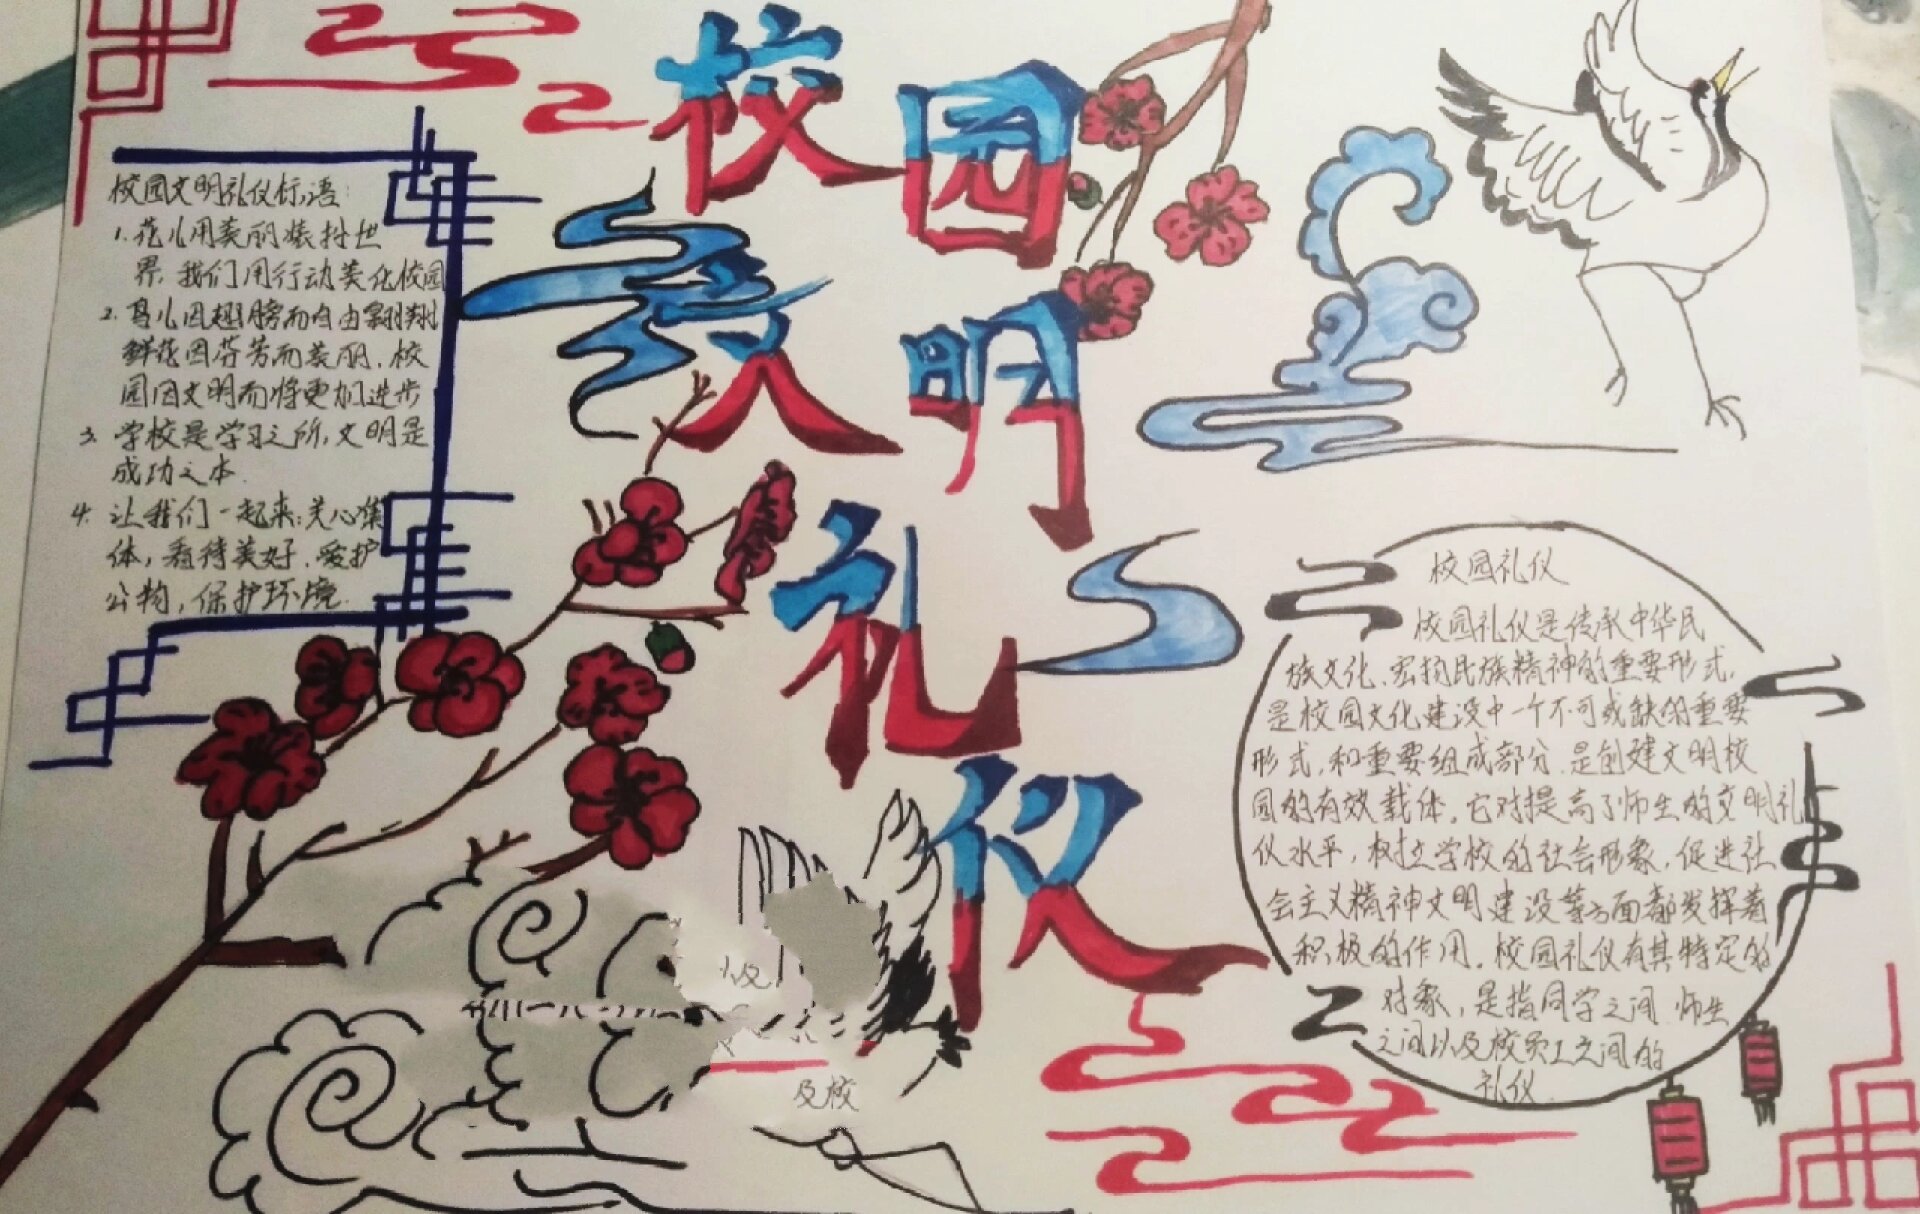 校园
文明
礼仪
校园文明礼仪标语:
1. 花儿用美丽装扮世
界,我们用行动美化校园
2. 鸟儿因翅膀而自由翱翔
鲜花因芬芳而美丽,校
园因文明而将更加进步
3. 学校是学习之所,文明是
成功之本.
4. 让我们一起来:关心集
体,看待美好.爱护
公物,保护环境.
校园礼仪
校园礼仪是传承中华民
族文化、宏扬民族精神的重要形式,
是校园文化建设中一个不可或缺的重要
形式,和重要组成部分.是创建文明校
园的有效载体.它对提高了师生的文明礼
仪水平,树立学校的社会形象,促进社
会主义精神文明建设等方面都发挥着
积极的作用.校园礼仪有其特定的
对象,是指同学之间.师生
之间以及校员工之间的
礼仪.
及校